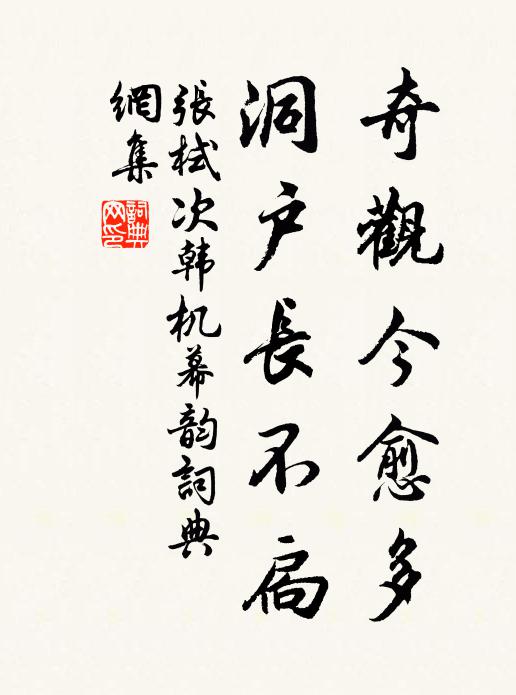 奇觀今愈多
洞户長不扃
張栻次韩机幕韵詞典
網集
詞典
网印